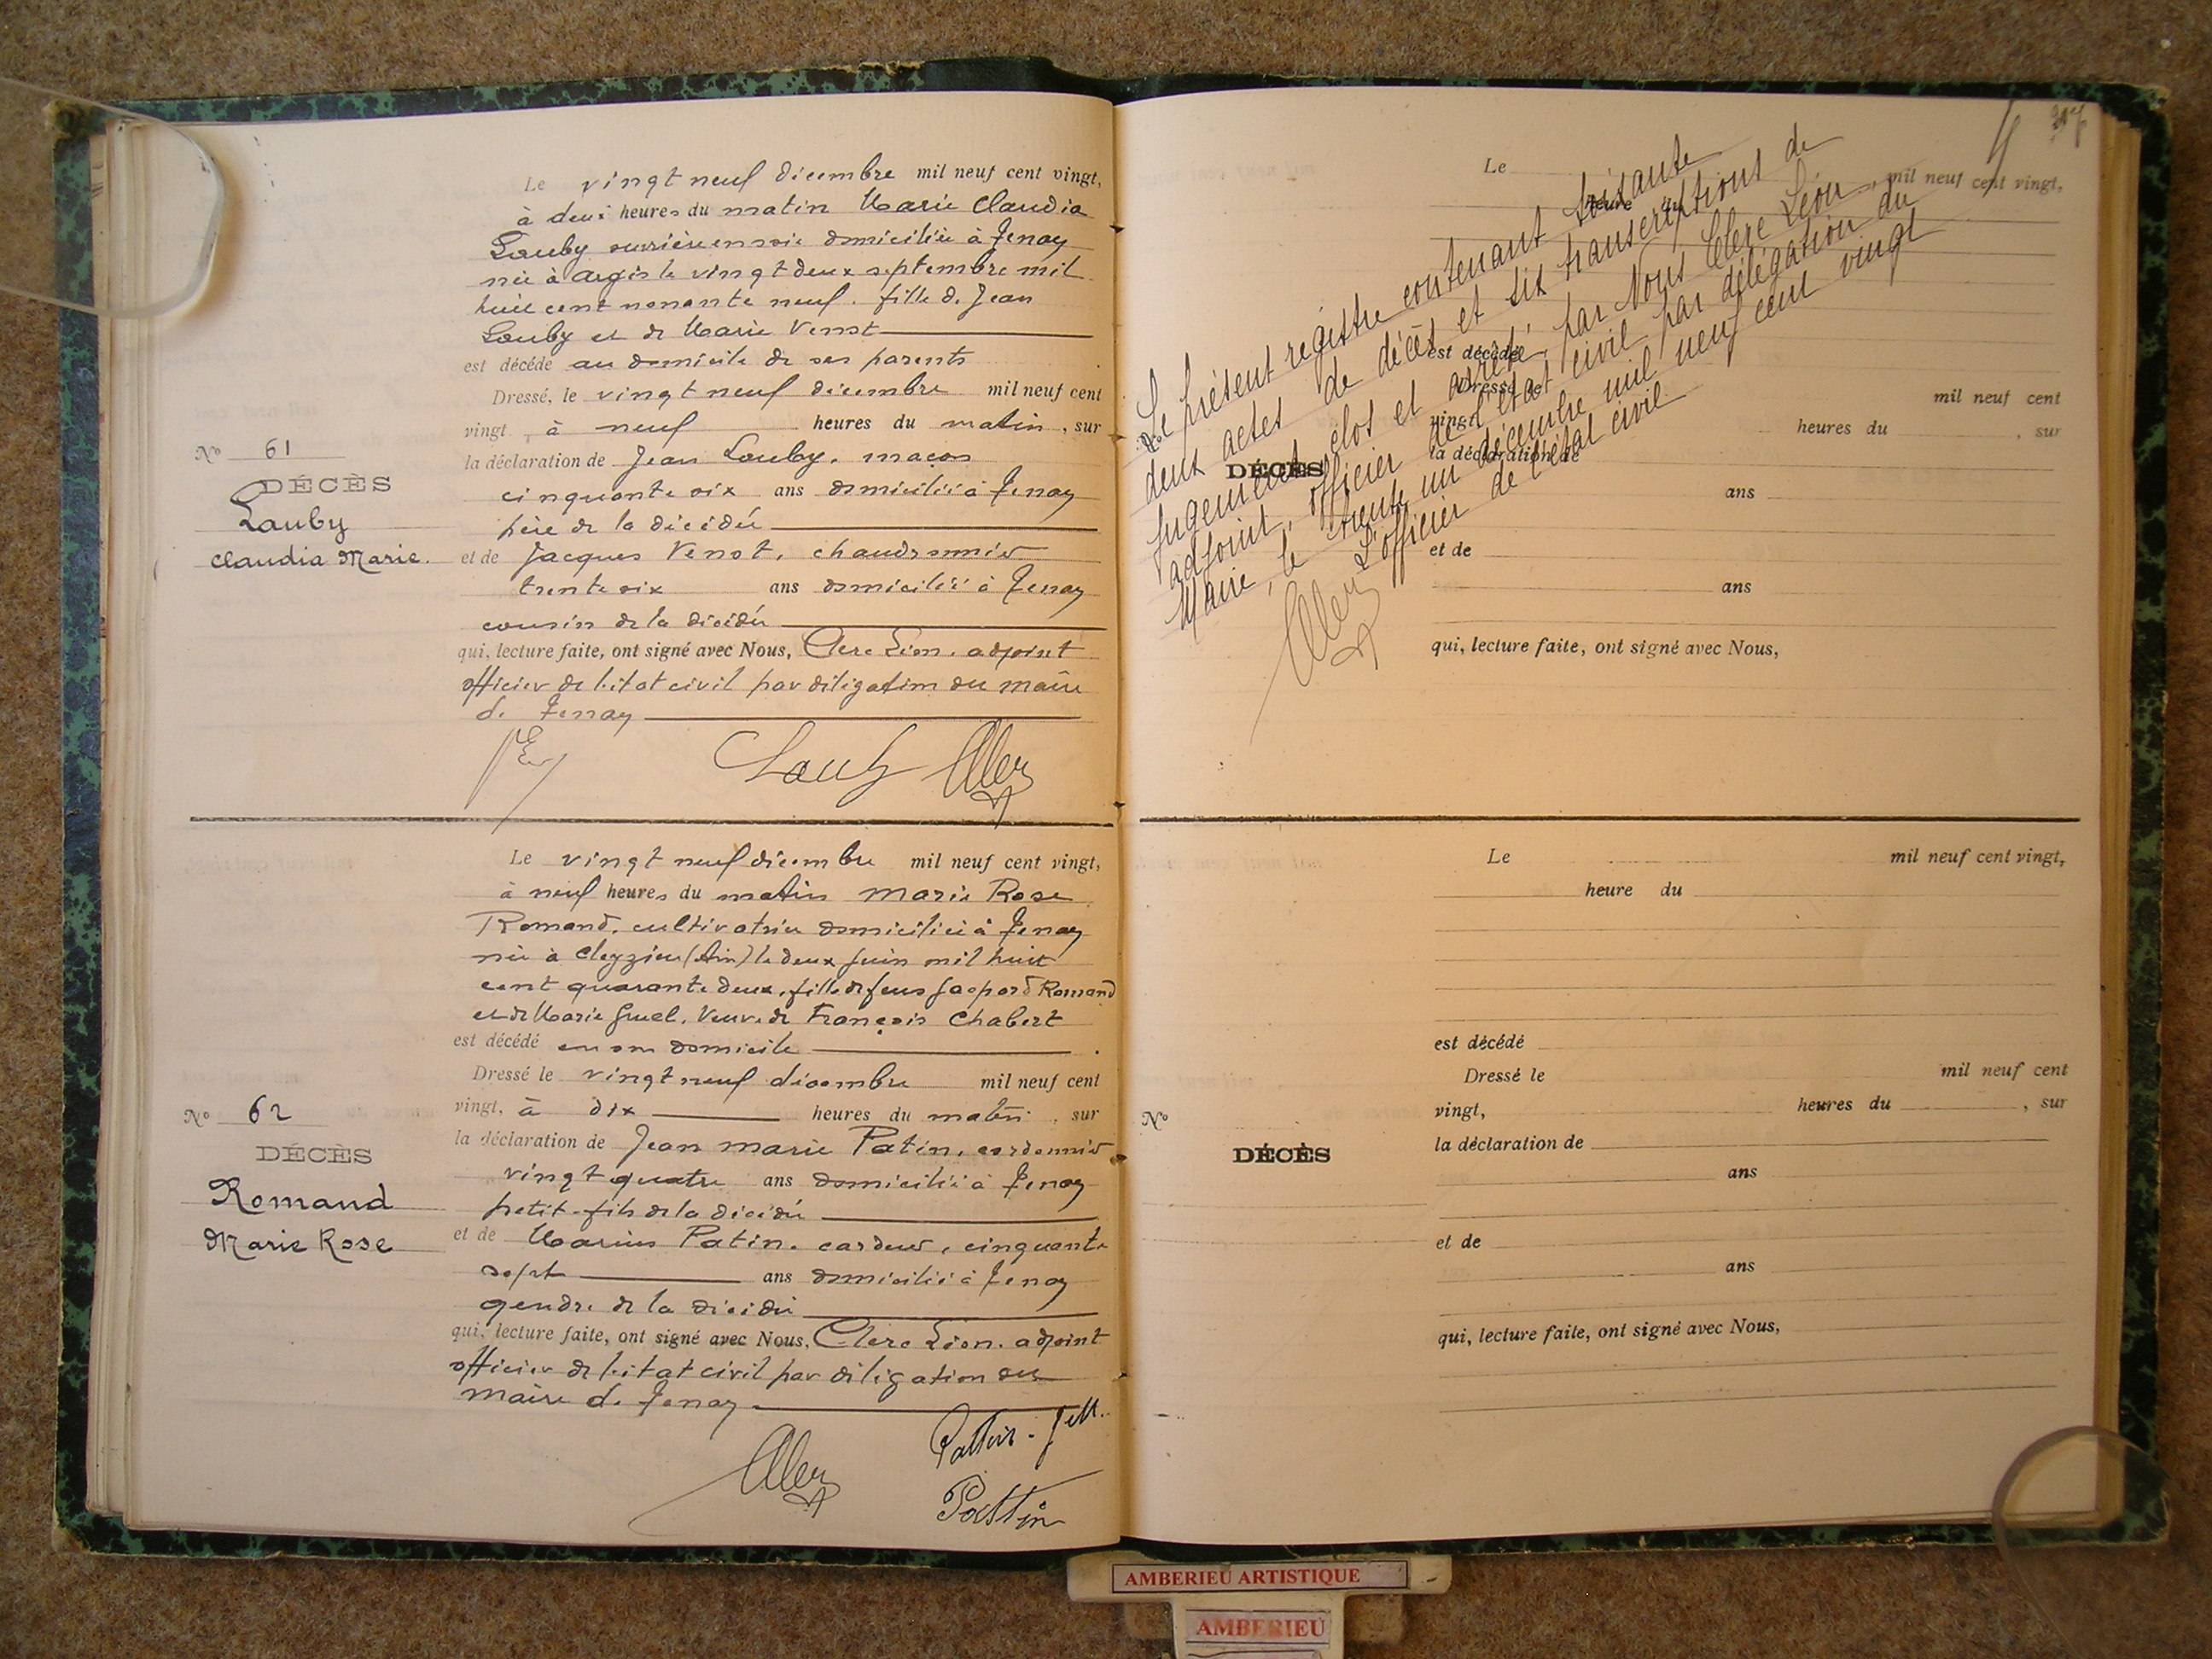 Le vingt neuf décembre mil neuf cent vingt,
à deux heures du matin Marie Claudia
Lauby ouvrière en soie domiciliée à Tenay
née à Argis le vingt deux septembre mil
huit cent nonante neuf. fille de Jean
Lauby et de Marie Venot
est décédé au domicile de ses parents
Dressé, le vingt neuf décembre mil neuf cent
vingt, à neuf heures du matin, sur
la déclaration de Jean Lauby, maçon
cinquante six ans domicilié à Tenay
père de la décédée
et de Jacques Venot, chaudronnier
trente six ans domicilié à Tenay
cousin de la décédée
qui, lecture faite, ont signé avec Nous, Clerc Léon, adjoint
officier de l'état civil par délégation du maire
de Tenay
Lauby
No 61
DÉCÈS
Lauby
Claudia Marie.
Le vingt neuf décembre mil neuf cent vingt,
à neuf heures du matin Marie Rose
Romand, cultivatrice domiciliée à Tenay
née à Cleyzieu (Ain) le deux juin mil huit
cent quarante deux, fille de feus Gaspard Romand
et de Marie Gruel, Veuve de François Chabert
est décédé en son domicile
Dressé le vingt neuf décembre mil neuf cent
vingt, à dix heures du matin, sur
la déclaration de Jean Marie Patin, cordonnier
vingt quatre ans domicilié à Tenay
petit-fils de la décédée
et de Marius Patin, cardeur, cinquante
sept ans domicilié à Tenay
gendre de la décédée
qui, lecture faite, ont signé avec Nous, Clerc Léon, adjoint
officier de l'état civil par délégation du
maire de Tenay
Pattin
No 62
DÉCÈS
Romand
Marie Rose
Le mil neuf cent vingt,
heure du
est décédé
Dressé le mil neuf cent
vingt, heures du , sur
la déclaration de
ans
et de
ans
qui, lecture faite, ont signé avec Nous,
No
DÉCÈS
Le présent registre contenant soixante
deux actes de décès et six transcriptions de
jugement, clos et arrêté par Nous Clerc Léon,
adjoint, officier de l'état civil par délégation du
Maire, le trente un décembre mil neuf cent vingt
L'officier de l'état civil
Le mil neuf cent vingt,
heure du
est décédé
Dressé le mil neuf cent
vingt, heures du , sur
la déclaration de
ans
et de
ans
qui, lecture faite, ont signé avec Nous,
No
DÉCÈS
AMBERIEU ARTISTIQUE
AMBERIEU